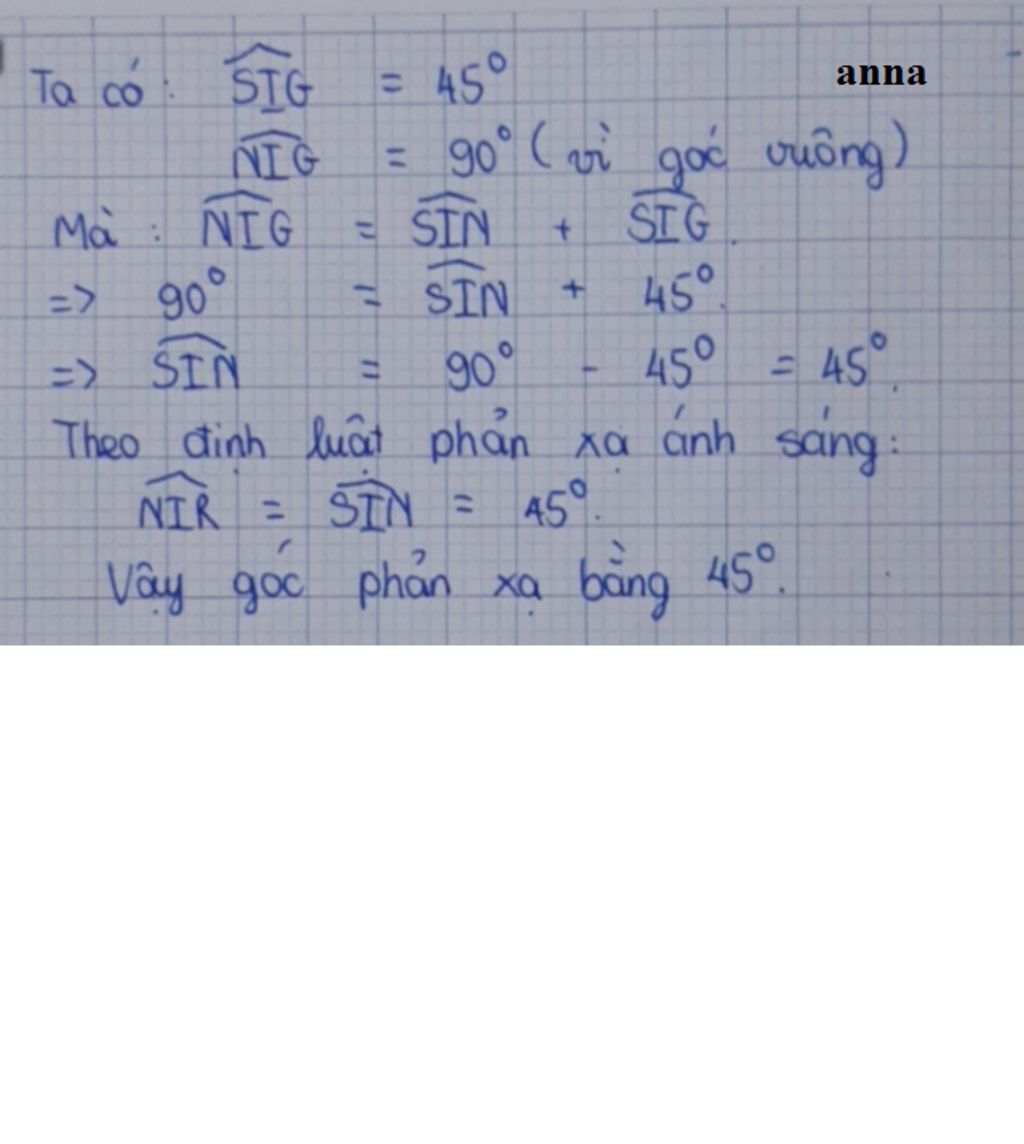 Ta có: SIG = 45° anna
NIG = 90° (vì góc vuông)
Mà: NIG = SIN + SIG.
=> 90° = SIN + 45°.
=> SIN = 90° - 45° = 45°.
Theo định luật phản xạ ánh sáng:
NIR = SIN = 45°.
Vậy góc phản xạ bằng 45°.